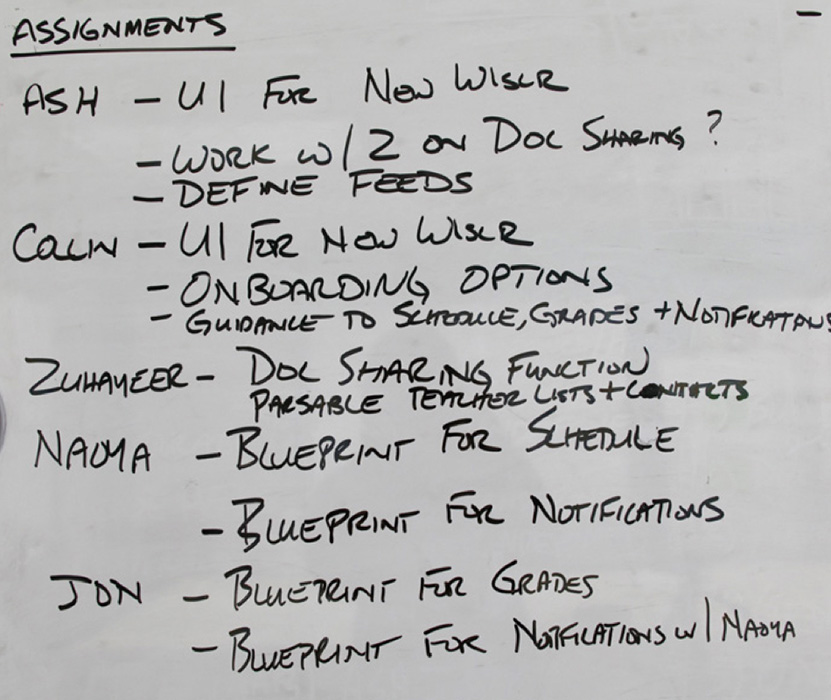 ASSIGNMENTS
ASH - UI FOR NEW WISER
- WORK W/ Z ON DOC SHARING ?
- DEFINE FEEDS
COLIN - UI FOR NEW WISER
- ONBOARDING OPTIONS
- GUIDANCE TO SCHEDULE, GRADES + NOTIFICATIONS
ZUHAYEER - DOC SHARING FUNCTION
PARSABLE TEACHER LISTS + CONTACTS
NAOYA - BLUEPRINT FOR SCHEDULE
- BLUEPRINT FOR NOTIFICATIONS
JON - BLUEPRINT FOR GRADES
- BLUEPRINT FOR NOTIFICATIONS W/ NAOYA